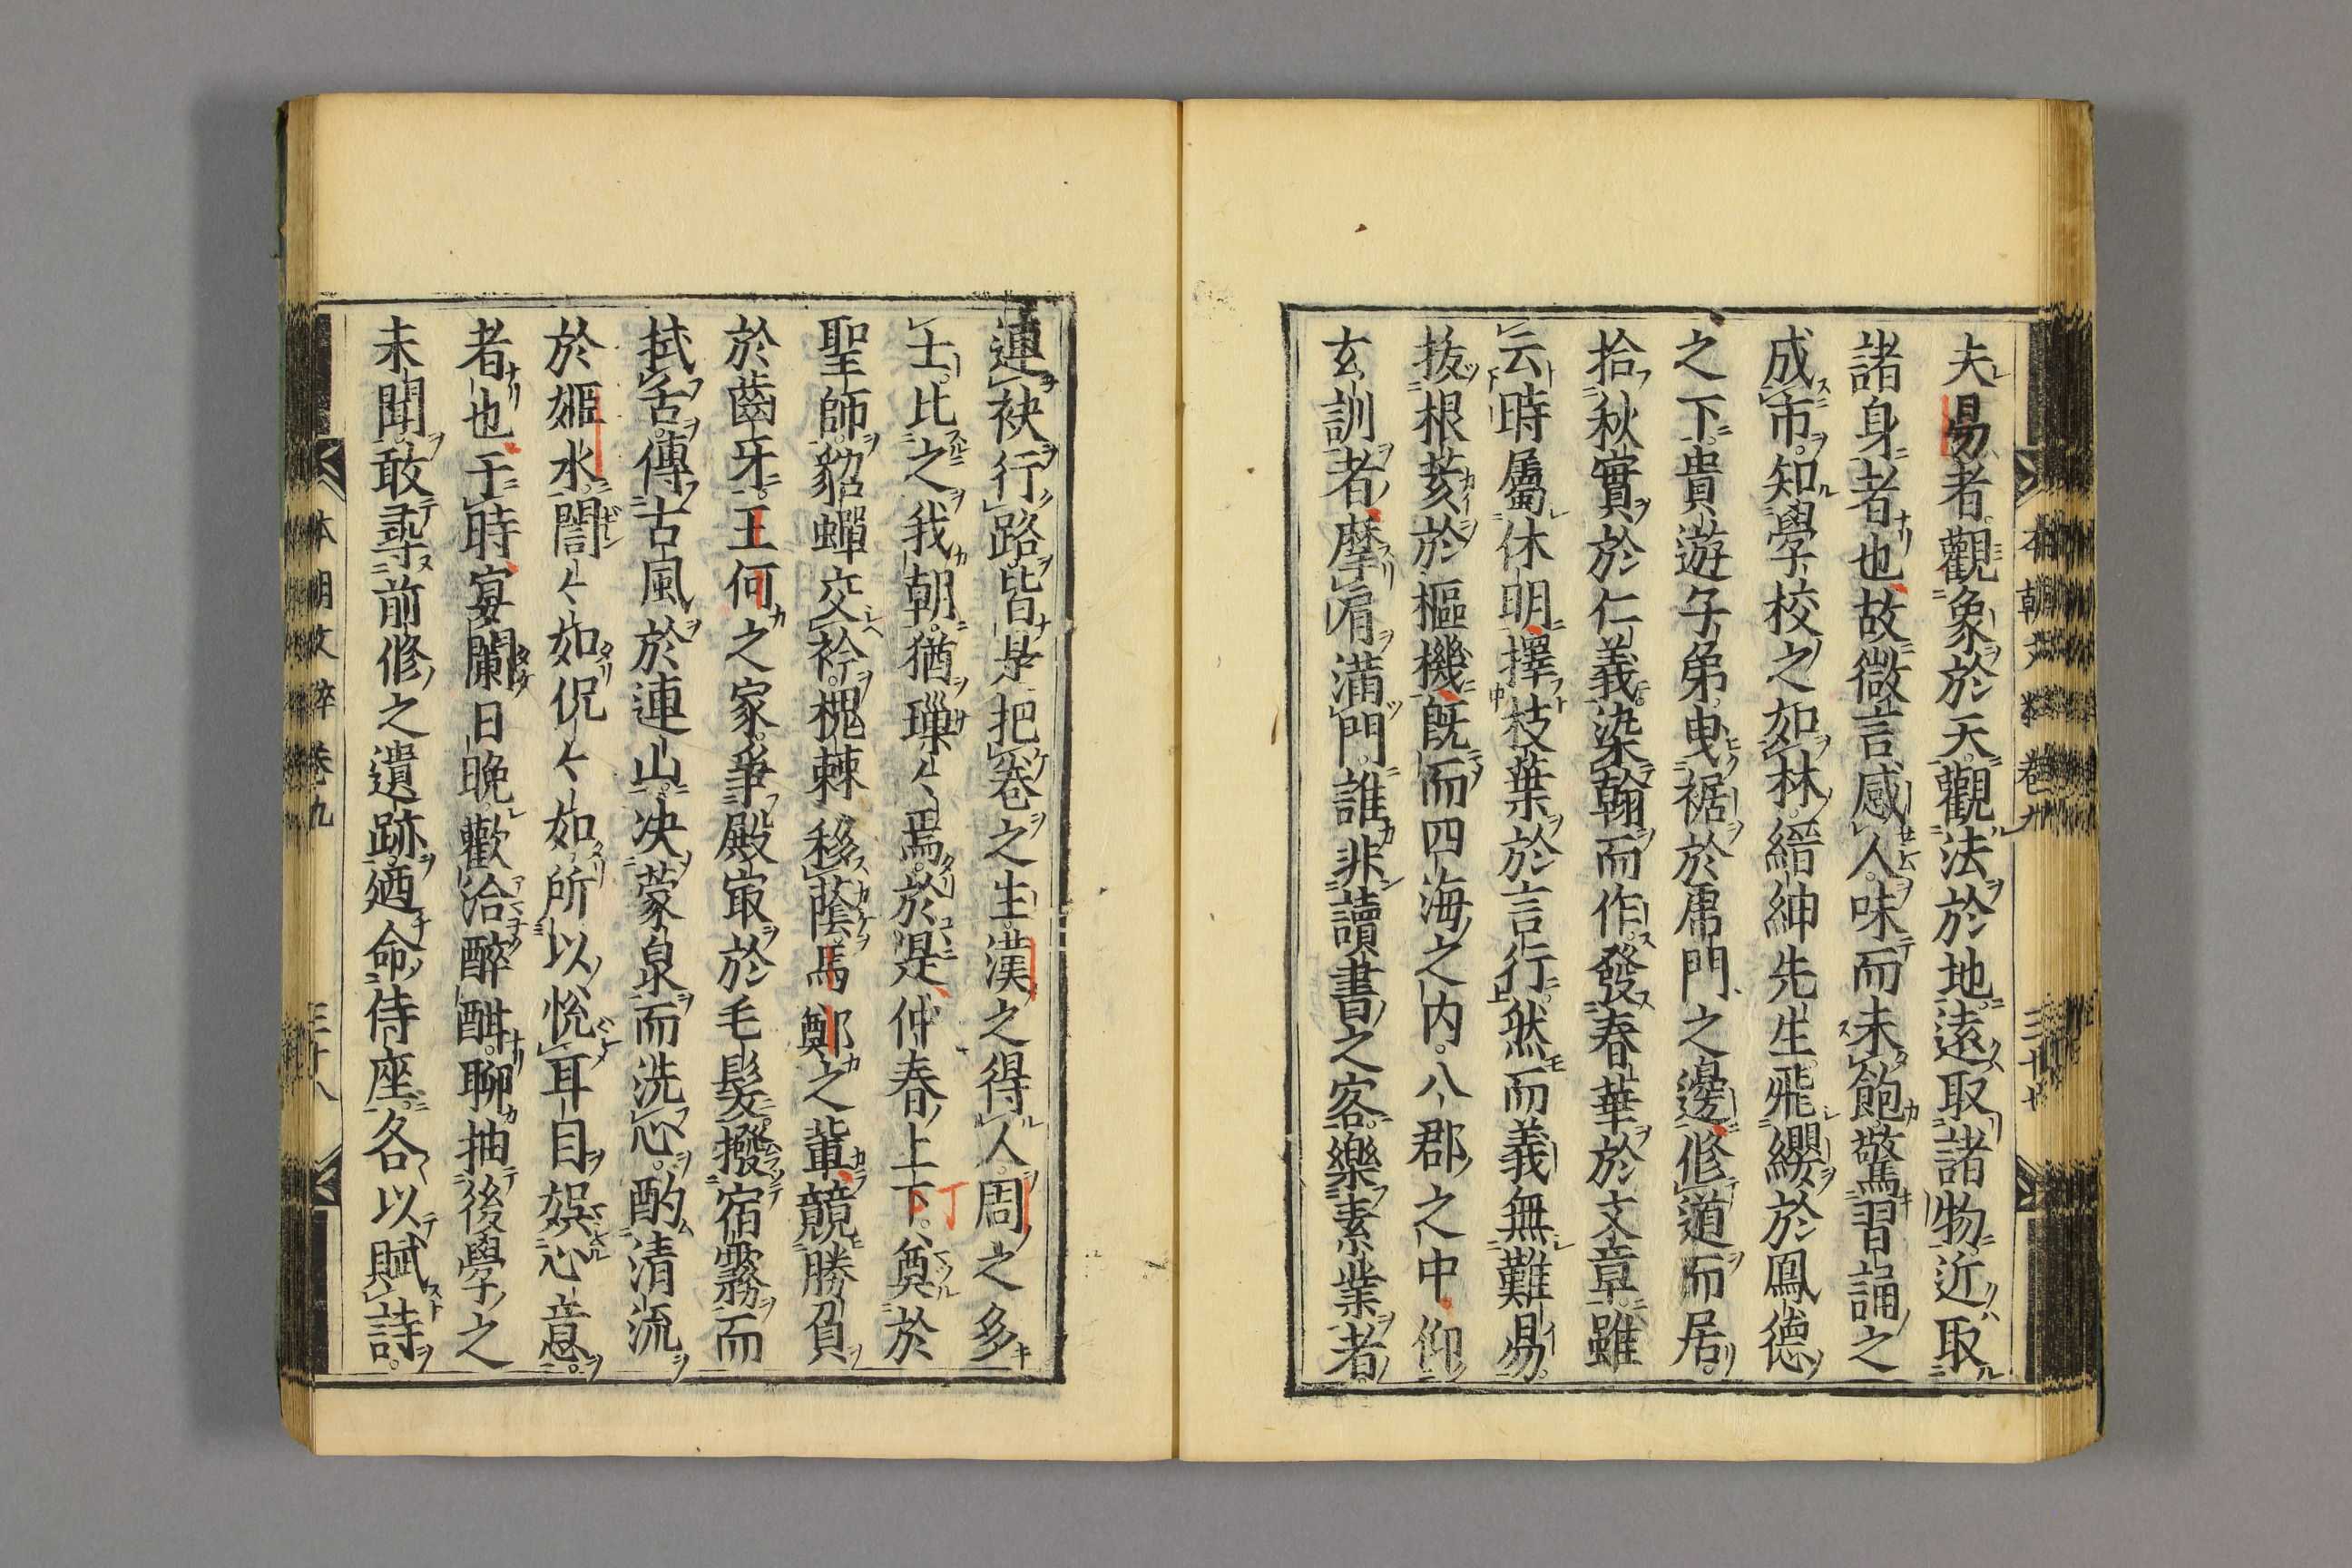 夫易者觀象於天觀法於地遠取諸物近取
諸身者也故微言感人味而未飽警習誦之
成市知學校之如林縉紳先生飛纓於鳳德
之下貴遊子弟曳裾於席門之邊修道而居
拾秋實於仁義染翰而作發春華於文章雖
云時屬休明擇枝葉於言行然而義無難易
拔根荄於樞機既而四海之内八郡之中仰
玄訓者摩肩滿門誰非讀書之客樂素業者
連袂行路皆是把卷之生漢之得人周之多
士比之我朝猶璅〻焉於是仲春上丁奠於
聖師貂蟬交衿槐棘移蔭馬鄭之輩競勝負
於齒牙王何之家爭殿最於毛髮撥宿霧而
拭舌傳古風於連山決蒙泉而洗心酌清流
於姬水誾〻如侃〻如所以悦耳目娯心意
者也于時宴闌日晩歡洽醉酣聊抽後學之
未聞敢尋前修之遺跡廼命侍座各以賦詩
本朝文粹卷九
三十八